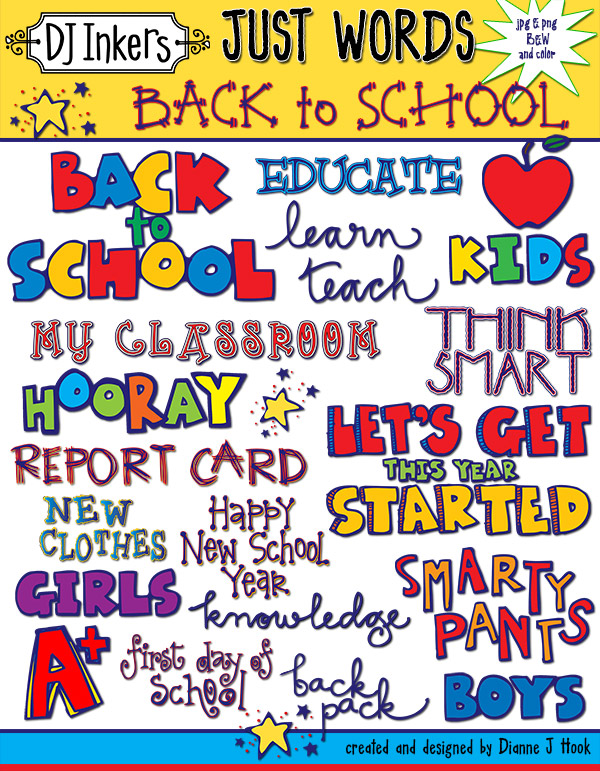 DJ INKERS
JUST WORDS
jpg & png
B&W
and color
BACK to SCHOOL
BACK
to
SCHOOL
EDUCATE
learn
teach
KIDS
MY CLASSROOM
THINK
SMART
HOORAY
LET'S GET
THIS YEAR
STARTED
REPORT CARD
NEW
CLOTHES
Happy
New School
Year
GIRLS
knowledge
SMARTY
PANTS
A+
first day of
School
back
pack
BOYS
created and designed by Dianne J Hook